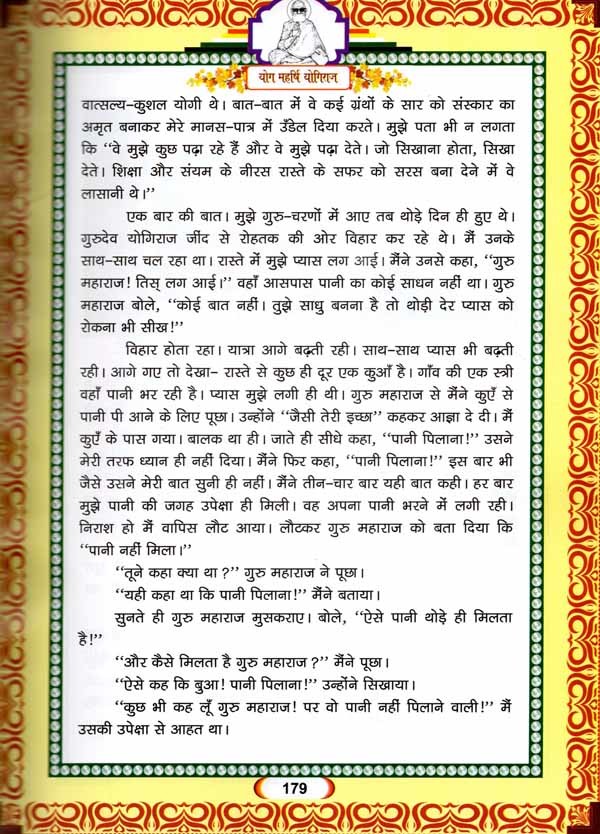 योग महर्षि योगिराज
वात्सल्य-कुशल योगी थे। बात-बात में वे कई ग्रंथों के सार को संस्कार का
अमृत बनाकर मेरे मानस-पात्र में उँडेल दिया करते। मुझे पता भी न लगता
कि ‘‘वे मुझे कुछ पढ़ा रहे हैं और वे मुझे पढ़ा देते। जो सिखाना होता, सिखा
देते। शिक्षा और संयम के नीरस रास्ते के सफर को सरस बना देने में वे
लासानी थे।’’
एक बार की बात। मुझे गुरु-चरणों में आए तब थोड़े दिन ही हुए थे।
गुरुदेव योगिराज जींद से रोहतक की ओर विहार कर रहे थे। मैं उनके
साथ-साथ चल रहा था। रास्ते में मुझे प्यास लग आई। मैंने उनसे कहा, ‘‘गुरु
महाराज! तिस् लग आई।’’ वहाँ आसपास पानी का कोई साधन नहीं था। गुरु
महाराज बोले, ‘‘कोई बात नहीं। तुझे साधु बनना है तो थोड़ी देर प्यास को
रोकना भी सीख!’’
विहार होता रहा। यात्रा आगे बढ़ती रही। साथ-साथ प्यास भी बढ़ती
रही। आगे गए तो देखा- रास्ते से कुछ ही दूर एक कुआँ है। गाँव की एक स्त्री
वहाँ पानी भर रही है। प्यास मुझे लगी ही थी। गुरु महाराज से मैंने कुएँ से
पानी पी आने के लिए पूछा। उन्होंने ‘‘जैसी तेरी इच्छा’’ कहकर आज्ञा दे दी। मैं
कुएँ के पास गया। बालक था ही। जाते ही सीधे कहा, ‘‘पानी पिलाना!’’ उसने
मेरी तरफ ध्यान ही नहीं दिया। मैंने फिर कहा, ‘‘पानी पिलाना!’’ इस बार भी
जैसे उसने मेरी बात सुनी ही नहीं। मैंने तीन-चार बार यही बात कही। हर बार
मुझे पानी की जगह उपेक्षा ही मिली। वह अपना पानी भरने में लगी रही।
निराश हो मैं वापिस लौट आया। लौटकर गुरु महाराज को बता दिया कि
‘‘पानी नहीं मिला।’’
‘‘तूने कहा क्या था?’’ गुरु महाराज ने पूछा।
‘‘यही कहा था कि पानी पिलाना!’’ मैंने बताया।
सुनते ही गुरु महाराज मुसकराए। बोले, ‘‘ऐसे पानी थोड़े ही मिलता
है!’’
‘‘और कैसे मिलता है गुरु महाराज?’’ मैंने पूछा।
‘‘ऐसे कह कि बुआ! पानी पिलाना!’’ उन्होंने सिखाया।
‘‘कुछ भी कह लूँ गुरु महाराज! पर वो पानी नहीं पिलाने वाली!’’ मैं
उसकी उपेक्षा से आहत था।
179